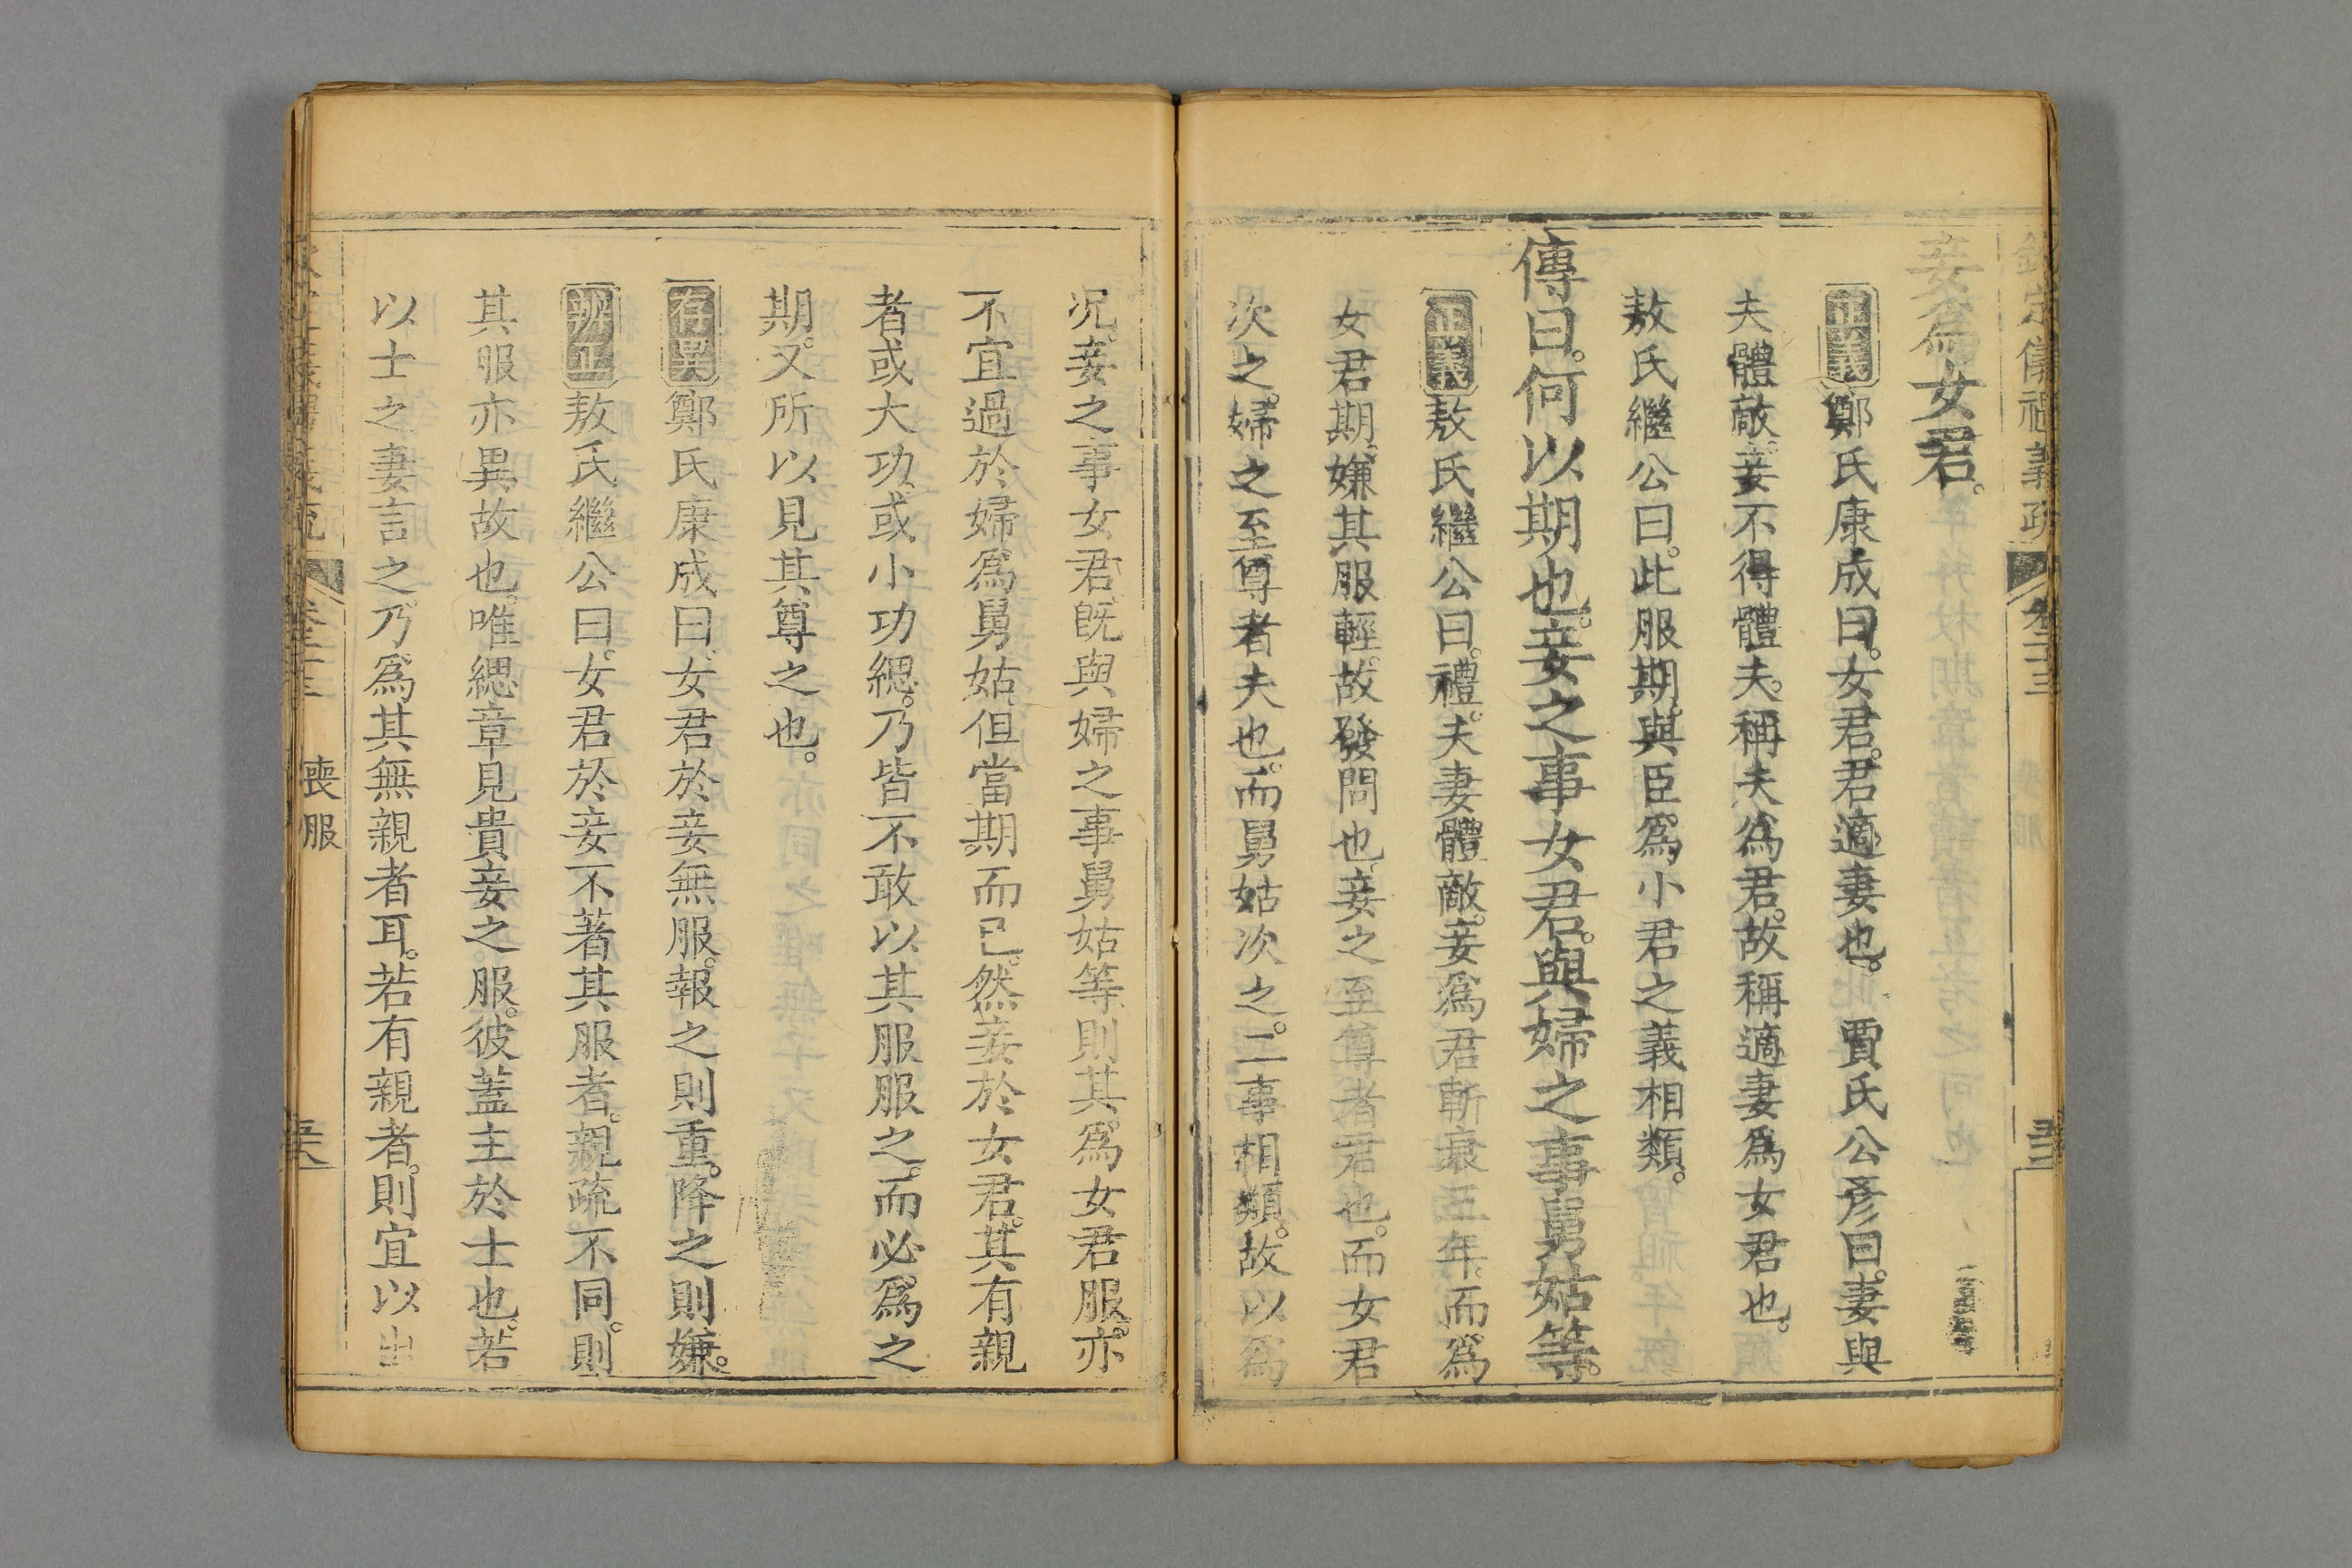 欽定儀禮義疏 卷二十三
妾爲女君。
正義鄭氏康成曰。女君。君適妻也。 賈氏公彥曰。妻與
夫體敵。妾不得體夫。稱夫爲君。故稱適妻爲女君也。
敖氏繼公曰。此服期。與臣爲小君之義相類。
傳曰。何以期也。妾之事女君。與婦之事舅姑等。
正義敖氏繼公曰。禮。夫妻體敵。妾爲君斬衰三年。而爲
女君期。嫌其服輕。故發問也。妾之至尊者君也。而女君
次之。婦之至尊者夫也。而舅姑次之。二事相類。故以爲
况。妾之事女君旣與婦之事舅姑等。則其爲女君服。亦
不宜過於婦爲舅姑。但當期而已。然妾於女君。其有親
者或大功。或小功緦。乃皆不敢以其服服之。而必爲之
期。又所以見其尊之也。
存異鄭氏康成曰。女君於妾無服。報之則重。降之則嫌。
辨正敖氏繼公曰。女君於妾不著其服者。親疏不同。則
其服亦異故也。唯緦章見貴妾之服。彼蓋主於士也。若
以士之妻言之。乃爲其無親者耳。若有親者。則宜以出
喪服